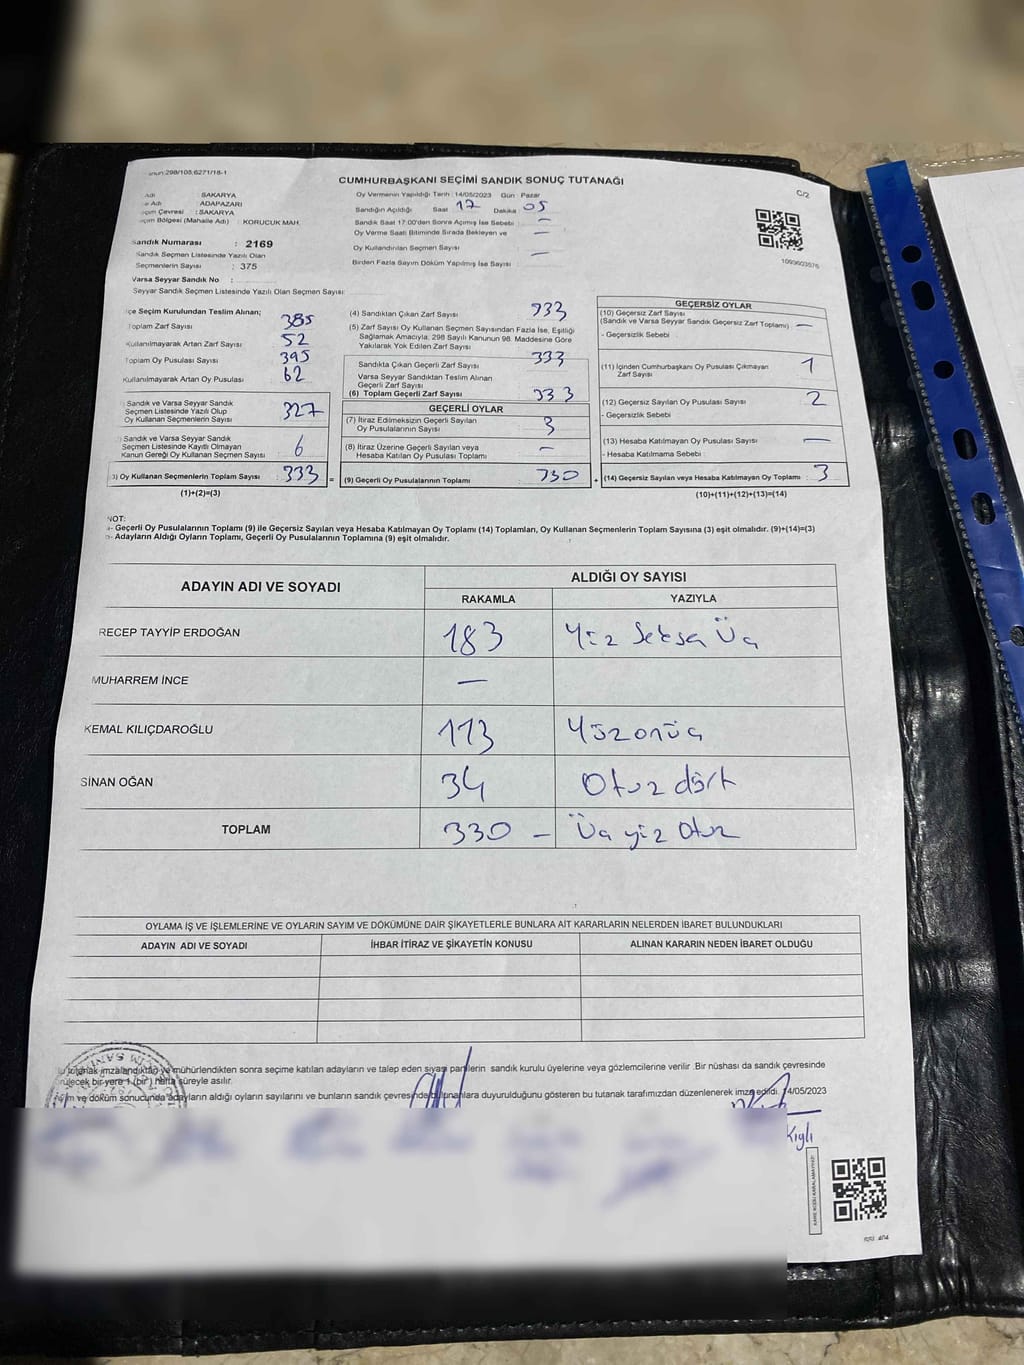 anun:298/105;6271/18-1
CUMHURBAŞKANI SEÇİMİ SANDIK SONUÇ TUTANAĞI
C/2
Adı SAKARYA
çe Adı ADAPAZARI
eçim Çevresi : SAKARYA
eçim Bölgesi (Mahalle Adı) : KORUCUK MAH.
Sandık Numarası : 2169
Sandık Seçmen Listesinde Yazılı Olan
Seçmenlerin Sayısı : 375
Varsa Seyyar Sandık No :
Seyyar Sandık Seçmen Listesinde Yazılı Olan Seçmen Sayısı:
Oy Vermenin Yapıldığı Tarih : 14/05/2023 Gün : Pazar
Sandığın Açıldığı Saat 17 Dakika 05
Sandık Saat 17:00'den Sonra Açımış İse Sebebi : —
Oy Verme Saati Bitiminde Sırada Bekleyen ve —
Oy Kullandırılan Seçmen Sayısı —
Birden Fazla Sayım Döküm Yapılmış İse Sayısı :
1093603576
çe Seçim Kurulundan Teslim Alınan;
Toplam Zarf Sayısı 385
Kullanılmayarak Artan Zarf Sayısı 52
Toplam Oy Pusulası Sayısı 395
Kullanılmayarak Artan Oy Pusulası 62
Sandık ve Varsa Seyyar Sandık
Seçmen Listesinde Yazılı Olup
Oy Kullanan Seçmenlerin Sayısı 327
Sandık ve Varsa Seyyar Sandık
Seçmen Listesinde Kayıtlı Olmayan
Kanun Gereği Oy Kullanan Seçmen Sayısı 6
3) Oy Kullanan Seçmenlerin Toplam Sayısı : 333 =
(1)+(2)=(3)
(4) Sandıktan Çıkan Zarf Sayısı : 333
(5) Zarf Sayısı Oy Kullanan Seçmen Sayısından Fazla İse, Eşitliği
Sağlamak Amacıyla, 298 Sayılı Kanunun 98. Maddesine Göre
Yakılarak Yok Edilen Zarf Sayısı
Sandıkta Çıkan Geçerli Zarf Sayısı : 333
Varsa Seyyar Sandıktan Teslim Alınan
Geçerli Zarf Sayısı
(6) Toplam Geçerli Zarf Sayısı : 333
GEÇERLİ OYLAR
(7) İtiraz Edilmeksizin Geçerli Sayılan
Oy Pusulalarının Sayısı : 3
(8) İtiraz Üzerine Geçerli Sayılan veya
Hesaba Katılan Oy Pusulası Toplamı : —
(9) Geçerli Oy Pusulalarının Toplamı : 330 +
GEÇERSİZ OYLAR
(10) Geçersiz Zarf Sayısı
(Sandık ve Varsa Seyyar Sandık Geçersiz Zarf Toplamı) : —
- Geçersizlik Sebebi :
(11) İçinden Cumhurbaşkanı Oy Pusulası Çıkmayan
Zarf Sayısı : 1
(12) Geçersiz Sayılan Oy Pusulası Sayısı : 2
- Geçersizlik Sebebi
(13) Hesaba Katılmayan Oy Pusulası Sayısı : —
- Hesaba Katılmama Sebebi :
(14) Geçersiz Sayılan veya Hesaba Katılmayan Oy Toplamı : 3
(10)+(11)+(12)+(13)=(14)
NOT:
a- Geçerli Oy Pusulalarının Toplamı (9) ile Geçersiz Sayılan veya Hesaba Katılmayan Oy Toplamı (14) Toplamları, Oy Kullanan Seçmenlerin Toplam Sayısına (3) eşit olmalıdır. (9)+(14)=(3)
b- Adayların Aldığı Oyların Toplamı, Geçerli Oy Pusulalarının Toplamına (9) eşit olmalıdır.
ADAYIN ADI VE SOYADI ALDIĞI OY SAYISI
RAKAMLA YAZIYLA
RECEP TAYYİP ERDOĞAN 183 Yüz Seksa Üç
MUHARREM İNCE —
KEMAL KILIÇDAROĞLU 113 Yüzonüç
SİNAN OĞAN 34 Otuz dört
TOPLAM 330 — Üç yüz Otuz
OYLAMA İŞ VE İŞLEMLERİNE VE OYLARIN SAYIM VE DÖKÜMÜNE DAİR ŞİKAYETLERLE BUNLARA AİT KARARLARIN NELERDEN İBARET BULUNDUKLARI
ADAYIN ADI VE SOYADI İHBAR İTİRAZ VE ŞİKAYETİN KONUSU ALINAN KARARIN NEDEN İBARET OLDUĞU
tutanak imzalandıktan ve mühürlendikten sonra seçime katılan adayların ve talep eden siyasi partilerin sandık kurulu üyelerine veya gözlemcilerine verilir. Bir nüshası da sandık çevresinde
rülecek bir yere 1 (bir) hafta süreyle asılır.
ım ve döküm sonucunda adayların aldığı oyların sayılarını ve bunların sandık çevresinde bulunanlara duyurulduğunu gösteren bu tutanak tarafımızdan düzenlenerek imza edildi. 14/05/2023